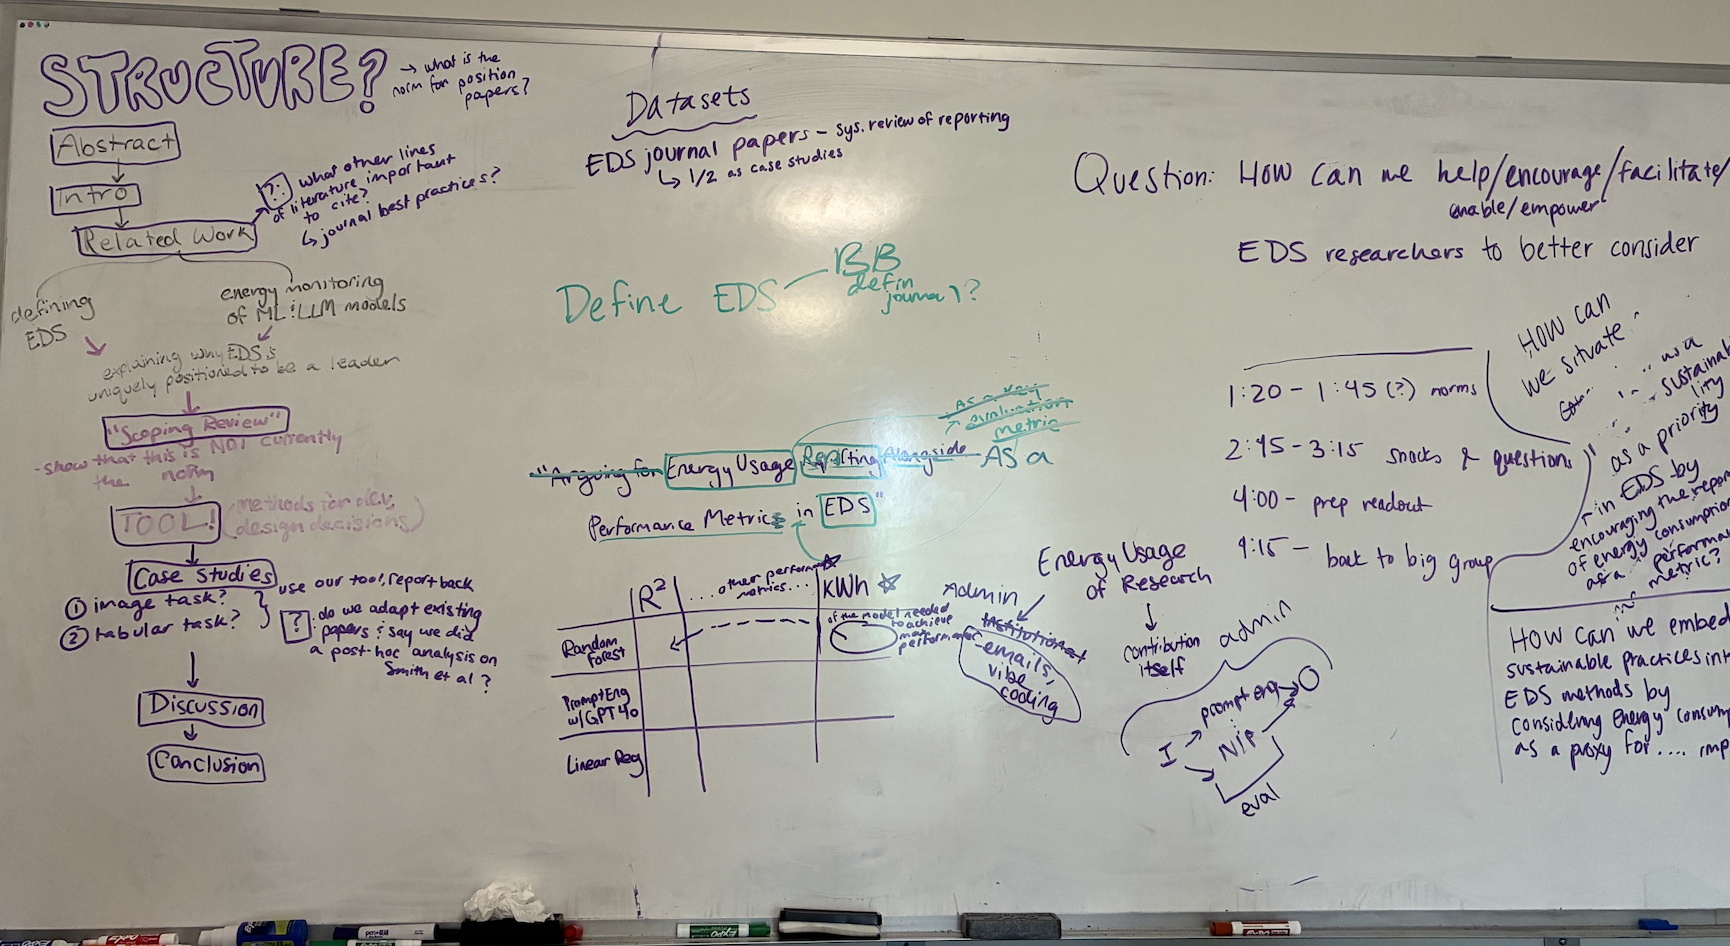 STRUCTURE?
→ what is the
norm for position
papers?
Abstract
Intro
Related Work
?: what other lines
of literature important
to cite?
↳ journal best practices?
defining
EDS
energy monitoring
of ML & LLM models
explaining why EDS is
uniquely positioned to be a leader
"Scoping Review"
- show that this is NOT currently
the norm
TOOL!
(methods for dev,
design decisions)
Case Studies
use our tool, report back
① image task?
② tabular task?
? : do we adapt existing
papers & say we did
a post-hoc analysis on
Smith et al?
Discussion
Conclusion
Datasets
EDS journal papers - sys. review of reporting
↳ 1/2 as case studies
Define EDS
BB
defin
journal?
As a key
evaluation
metric
"Arguing for Energy Usage Reporting Alongside As a
Performance Metric in EDS"
R²
... other perform
metrics...
KWh
of the model needed
to achieve
performance
Random
Forest
Prompt Eng
w/ GPT 4o
Linear Reg
Energy Usage
of Research
Admin
Institution
-emails,
vibe
coding
contribution
itself
admin
I → prompt eng → O
NIP
eval
Question: How can we help/encourage/facilitate/
enable/empower
EDS researchers to better consider
1:20 - 1:45 (?) norms
2:45 - 3:15 snacks & questions
4:00 - prep readout
4:15 - back to big group
How can
we situate
as a
sustainability
as a priority
in EDS by
encouraging the
of energy
as a
metric?
How can we embed
sustainable practices
EDS methods by
considering Energy
as a proxy for ....